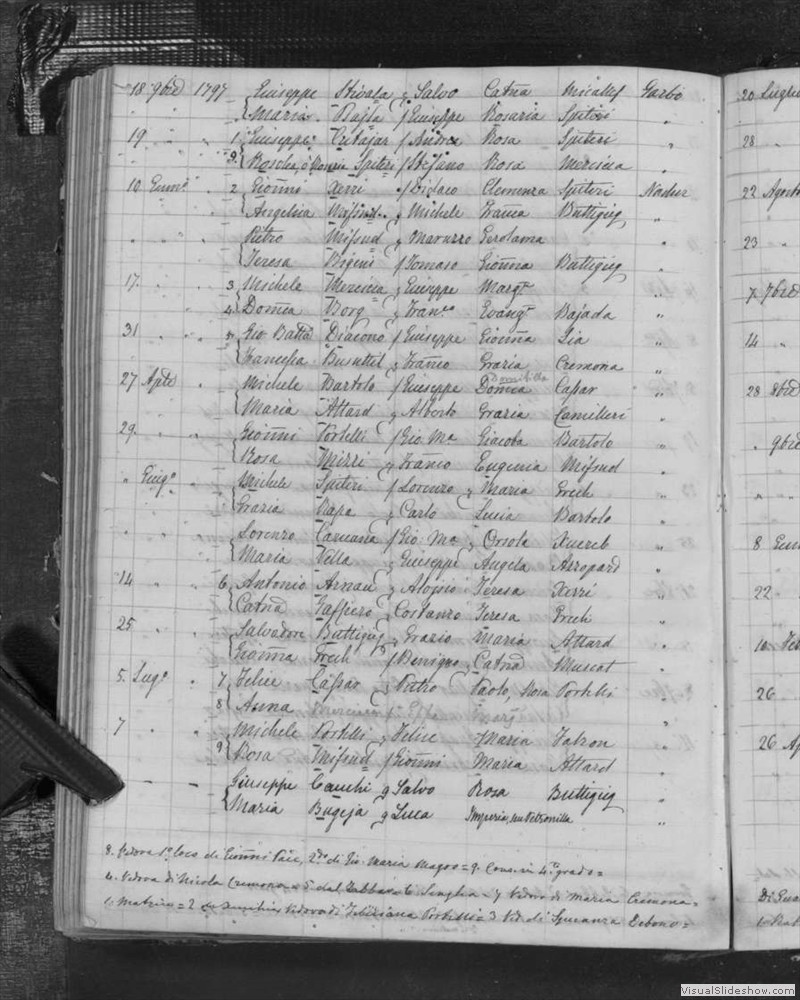 18 9bre 1797 Giuseppe Stivala q Salvo Catna Micallef Garbo 20 Luglio
Maria Bajla f Giuseppe Rosaria Spiteri "
19 " 1 Giuseppe Cutajar f Andrea Rosa Spiteri " 28
2 Spiteri f Stefano Rosa Mercieca "
10 " 2 Gioñni Xerri f Didaco Clemenza Spiteri Nadur 22 Agosto
Angelica Mifsud q Michele Franca Buttigieg "
" " Pietro Mifsud q Mavurro Gerolama 23
Teresa f Tomaso Gioñna Buttigieg "
17 " 3 Michele Mercieca q Giuseppe Margta " 7 7bre
4 Domca Borg q Franco Evangta Bajada "
31 " 5 Gio Batta Diacono f Giuseppe Gioñna Zia " 14 "
Francesca Busuttil q Franco Grazia Cremona "
Domitilla
27 Aple " Michele Bartolo f Giuseppe Domca Caspar " 28 8bre
Maria Attard q Alberto Grazia Camilleri "
29 " Gioñni Portelli f Gio Ma Giacoba Bartolo " " 9bre
Rosa Mizzi q Franco Eugenia Mifsud "
" Giugo Michele Spiteri f Lorenzo q Maria Grech "
Grazia Rapa q Carlo Lucia Bartolo "
" Lorenzo Caruana f Gio Ma q Orsola Xuereb "
Maria Vella q Giuseppe Angela Azzopard " 8
14 " 6 Antonio Arnau q Aloysio Teresa Xerri "
Catna Gaffiero q Costanzo Teresa Grech " 22 "
25 " Salvadore Buttigieg q Grazio Maria Attard "
Gioñna Grech f Benigno q Catna Muscat " 10
5 Lugo 7 Felice Caspar q Pietro Paolo, Rosa Portelli " 26
8 Anna "
7 " Michele Portelli q Felice Maria Falzon "
9 Rosa Mifsud f Gioñni Maria Attard " 26 Ap
Giuseppe Cauchi q Salvo Rosa Buttigieg "
Maria Bugeja q Luca Imperia, seu Petronilla "
8. Vedova 1o loco di Gioñni Pace, 2do di Gio Maria Magro = 9. Cons. in 4o grado =
4. Vedova di Nicola Cremona = 5 dal Zabbar = 6 Senglea = 7 Vedovo di Maria Cremona =
1. Matrice = 2 Vedova di Feliciano Portelli = 3 Ved. di Speranza Debono =
VisualSlideshow.com